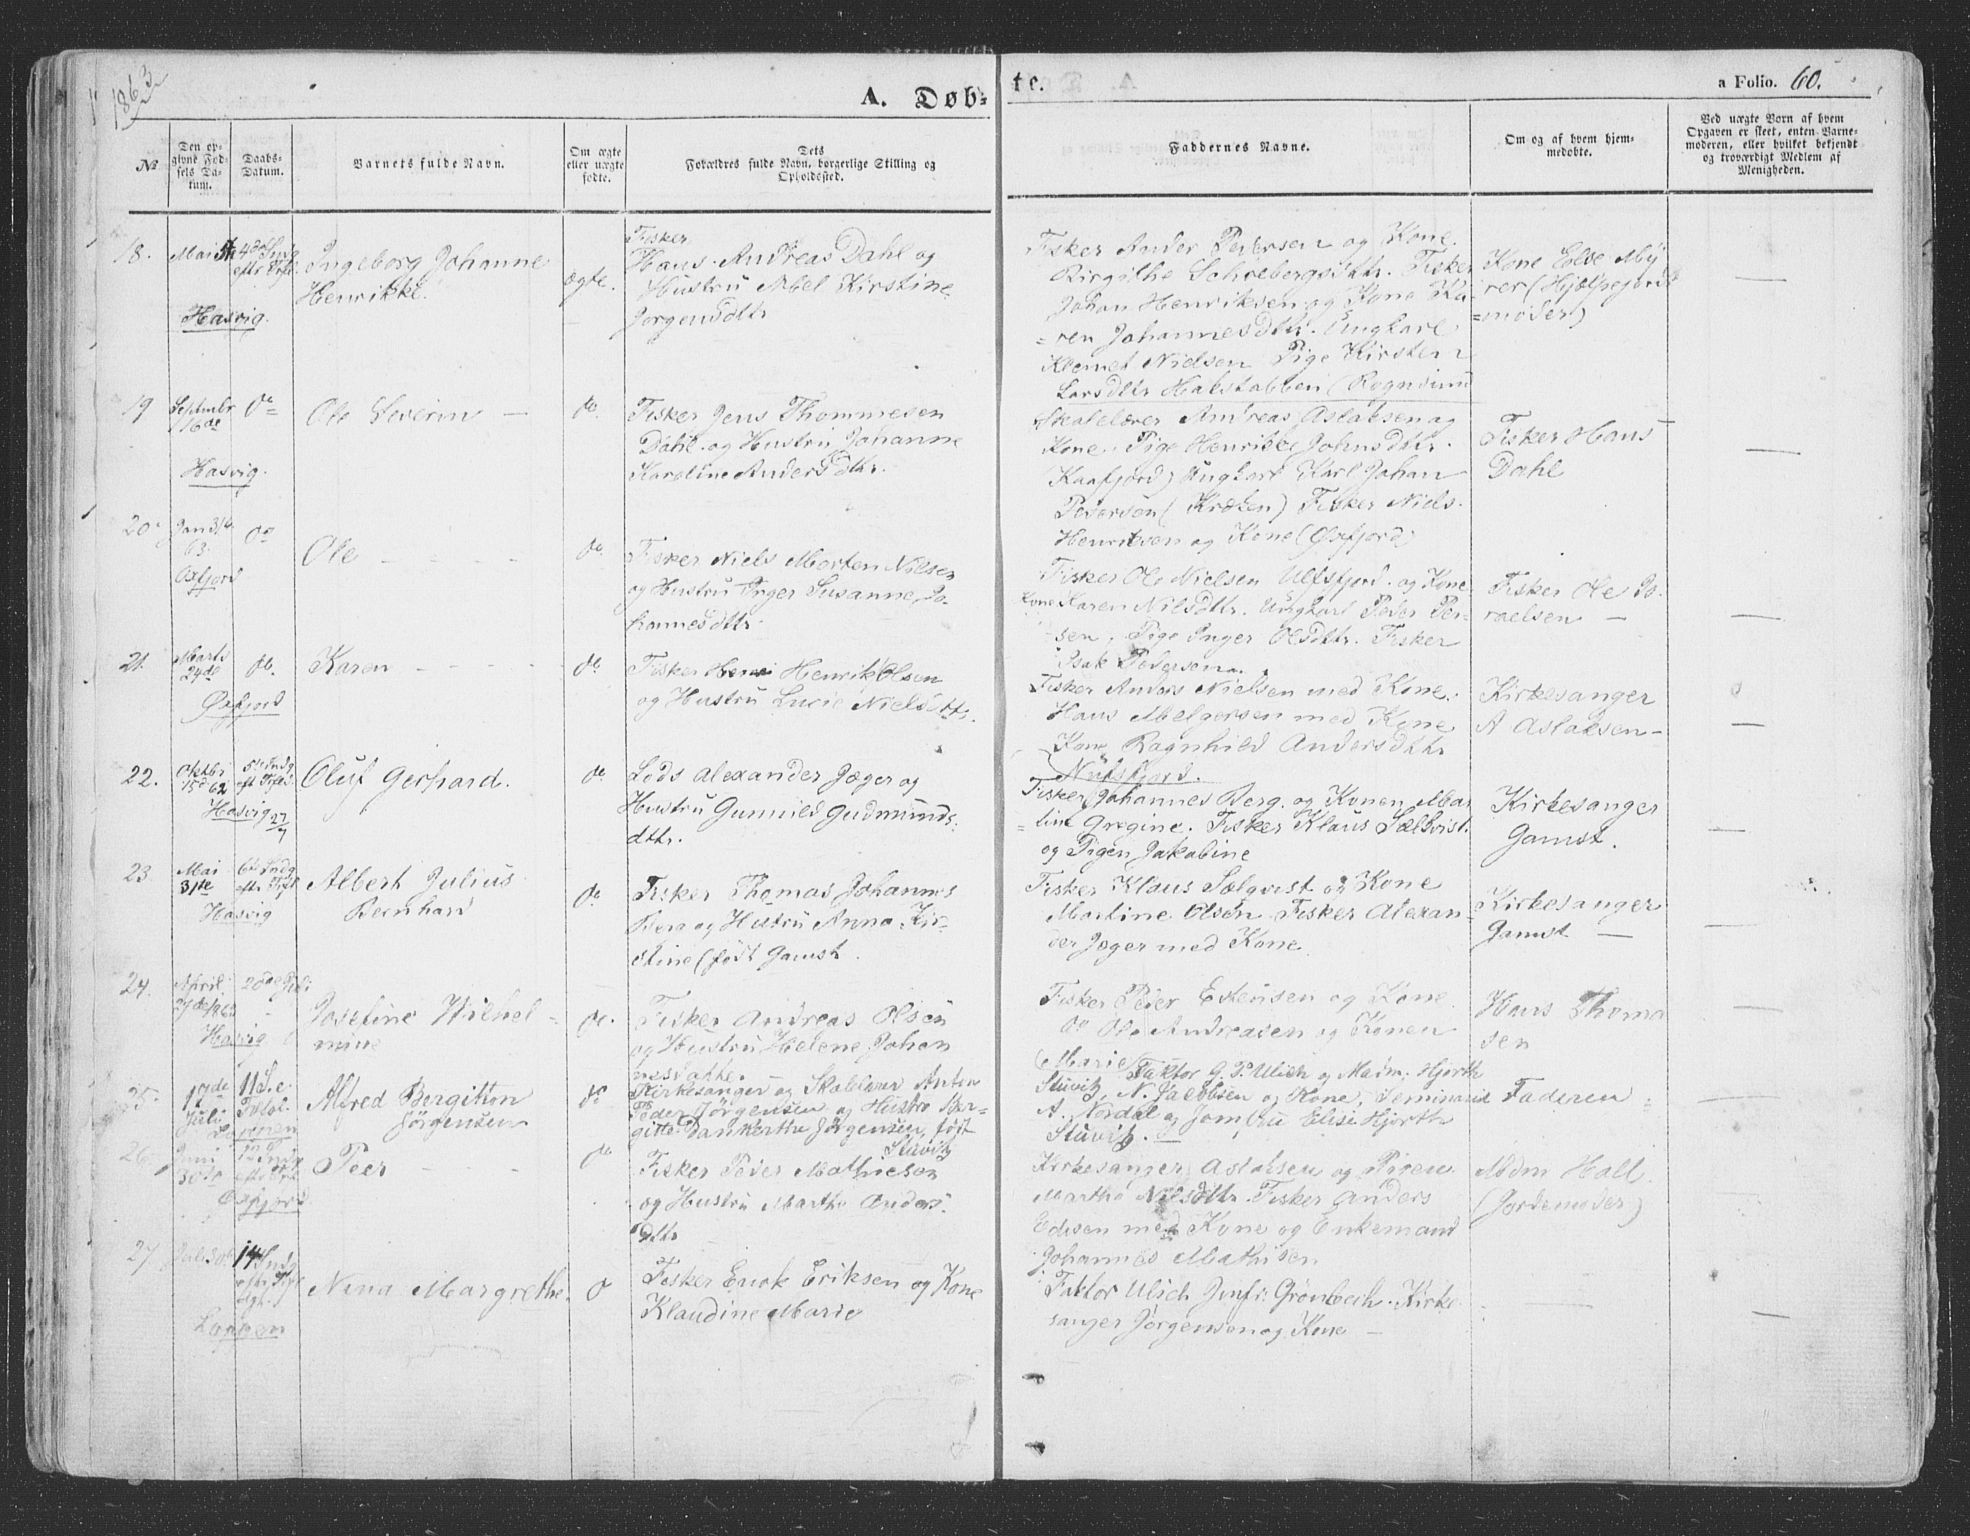 1863
A. Døb-
te.
a Folio. 60.
No
Den op-
givne Fød-
sels Da-
tum.
Daabs-
Datum.
Barnets fulde Navn.
Om ægte
eller uægte
fødte.
Dets
Forældres fulde Navn, borgerlige Stilling og
Opholdssted.
Faddernes Navne.
Om og af hvem hjem-
medøbte.
Ved uægte Børn af hvem
Opgaven er skeet, enten Barne-
moderen, eller hvilket bekjendt
og troværdigt Medlem af
Menigheden.
18.
Mai
4de Sndg
eftr Trft
Hasvig.
Ingeborg Johanne
Henrikke.
ægte.
Fisker
Hans Andreas Dahl og
Hustru Abel Kirstine
Jørgensdttr
Fisker Ander Pedersen og Kone
Birgithe Schrebergsdttr. Fisker
Johan Henriksen og Kone Ka-
=ren Johannesdttr. Ungkarl
Klemet Nielsen Pige Kirsten
Larsdttr Halstabben (Rognsund
Kone Else My
rer (Hjælpejord
=moder)
19
Septmbr
16de
Hasvig.
do
Ole Severin
do
Fisker Jens Thommesen
Dahl og Hustru Johanne
Karoline Andersdttr.
Skolelærer Andreas Aslaksen og
Kone. Pige Henrikke Johnsdttr.
Kaafjord) Ungkarl Karl Johan
Pedersen (Kræken) Fisker Niels
Henriksen og Kone (Øxfjord)
Fisker Hans
Dahl
20
Jan 31te
63.
Oxfjord
do
Ole
do
Fisker Niels Morten Nilsen
og Hustru Inger Susanne Jo-
hannesdttr
Fisker Ole Nielsen Ulfsfjord og Kone
Kone Karen Nilsdttr. Ungkarl Peder Per-
sen, Pige Inger Olsdttr. Fisker
Isak Pedersen
Fisker Ole Is-
raelsen
21.
Marts
24de
Øxfjord
do.
Karen
do
Fisker Henrik Olsen
og Hustru Lucie Nielsdttr.
Fisker Anders Nielsen med Kone.
Hans Melgersen med Kone
Kone Ragnhild Andersdttr
Nuvsfjord.
Kirkesanger
A Aslaksen
22.
Oktbr
15d 62
Hasvig
5te Sndg
eft Trfts
27/7
Oluf Gerhard.
do
Lods Alexander Jæger og
Hustru Gunnild Gudmunds-
dttr.
Fisker Johannes Berg og Konen Mar
=tine Gregine. Fisker Klaus Sælqvist
og Pigen Jakobine
Kirkesanger
Gamst.
23
Mai
31te
Hasvig
6te Sndg
eftr Trft
Albert Julius
Bernhard
do
Fisker Thomas Johannes
Berg og Hustru Anna Kir-
stine (født Gamst.
Fisker Klaus Sælqvist og Kone
Martine Olsen. Fisker Alexan-
der Jæger med Kone
Kirkesanger
Gamst
24.
April
27de
Hasvig
Josefine Wilhel-
mine
do.
Fisker Andreas Olsen
og Hustru Helene Johan
nesdatter.
Fisker Peder Estensen og Kone
do Ole Andreasen og Konen
Marie
Hans Thoma
sen
25.
17de
Juli
Loppen
11 S. e.
Trefol.
Alfred Bergitton
Jörgensen
do
Kirkesanger og Skolelærer Anton
Peder Jörgensen og Hustru Ber-
gitte Dankertha Jörgensen, født
Stuvitz
Faktor G. P. Ulich og Madm; Hjorth
Stuvitz, N. Jacobsen og Kone, Seminarist
A. Nordal og Jomfru Elise Hjorth
Stuvitz.
Faderen
26
Juni
30te
Oxfjord
Peer
do
Fisker Peder Mathiesen
og Hustru Marthe Anders-
dttr
Kirkesanger Aslaksen og Pigen
Marthe Nilsdttr. Fisker Anders
Edisen med Kone og Enkemand
Johannes Mathisen
Mdm Hall
(Jordemoder)
27
Juli 30te
Loppen
14 Sndg
eftr
Nina Margrethe.
do
Fisker Enok Eriksen og Kone
Klaudine Marie
Faktor Ulich Jmfr: Grönbech. Kirke-
sanger Jørgensen og Kone